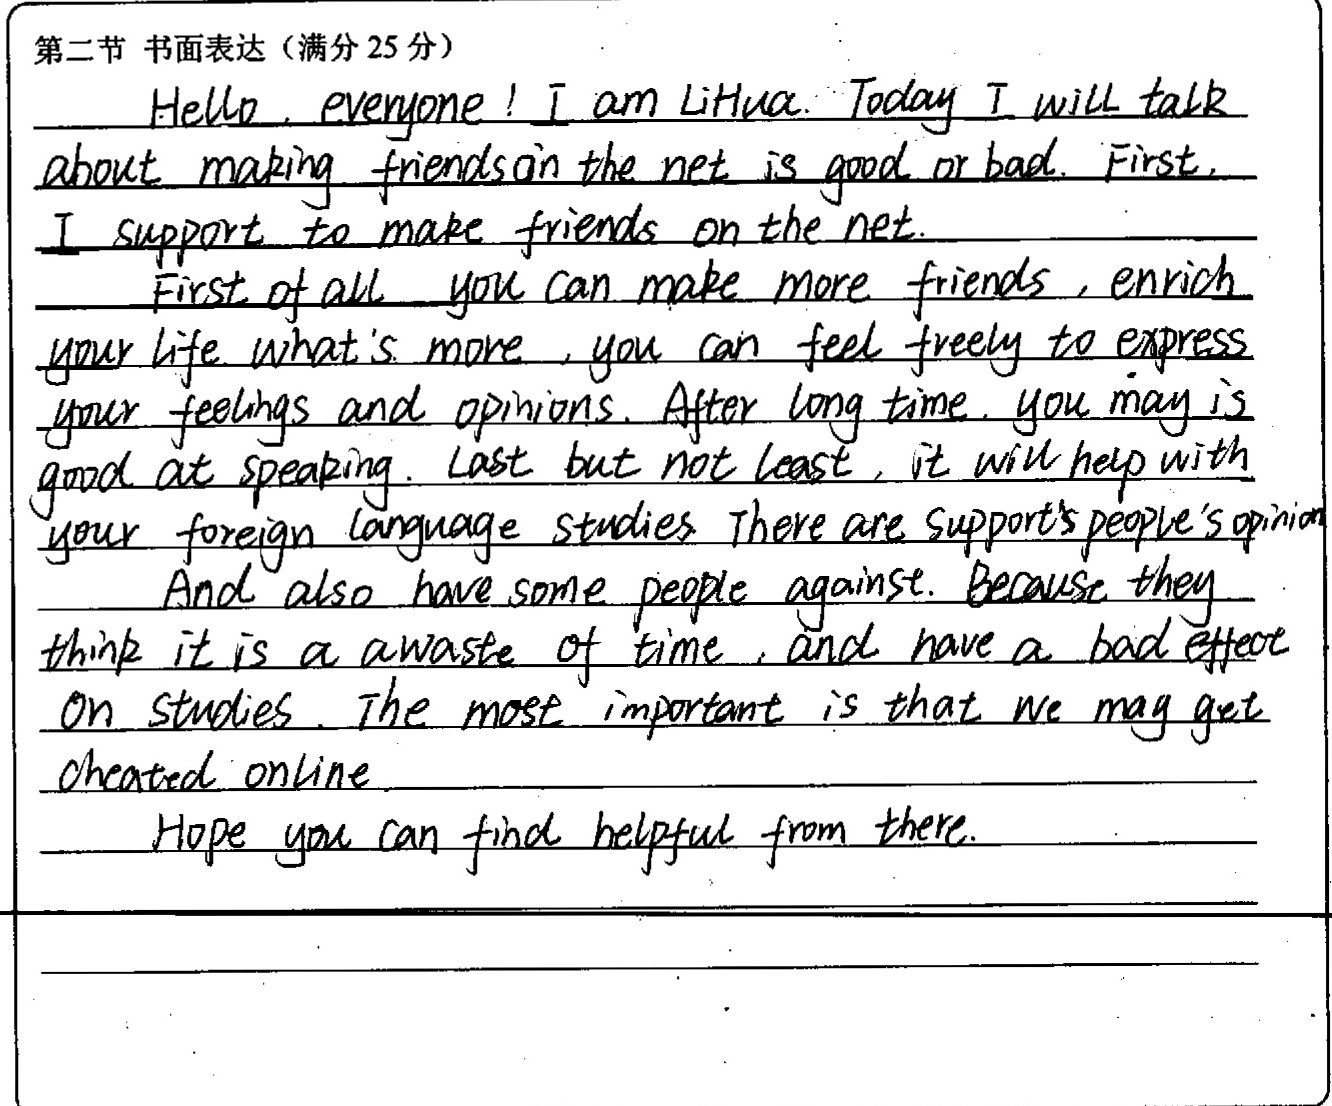 第二节 书面表达（满分 25 分）
Hello, everyone! I am LiHua. Today I will talk
about making friends on the net is good or bad. First,
I support to make friends on the net.
First of all you can make more friends, enrich
your life what's more, you can feel freely to express
your feelings and opinions. After long time. you may is
good at speaking. Last but not least, it will help with
your foreign language studies There are support's people's opinion
And also have some people against. Because they
think it is a awaste of time, and have a bad effect
on studies. The most important is that we may get
cheated online
Hope you can find helpful from there.